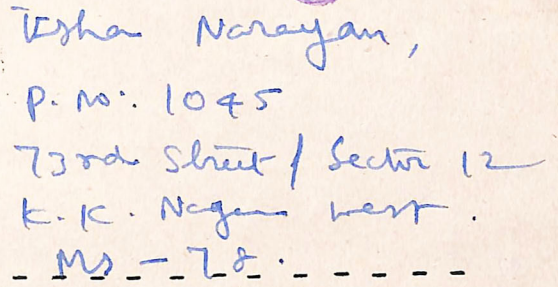 Usha Narayan,
P. No: 1045
73rd Street / Sector 12
K.K. Nagar West.
Ms - 78.